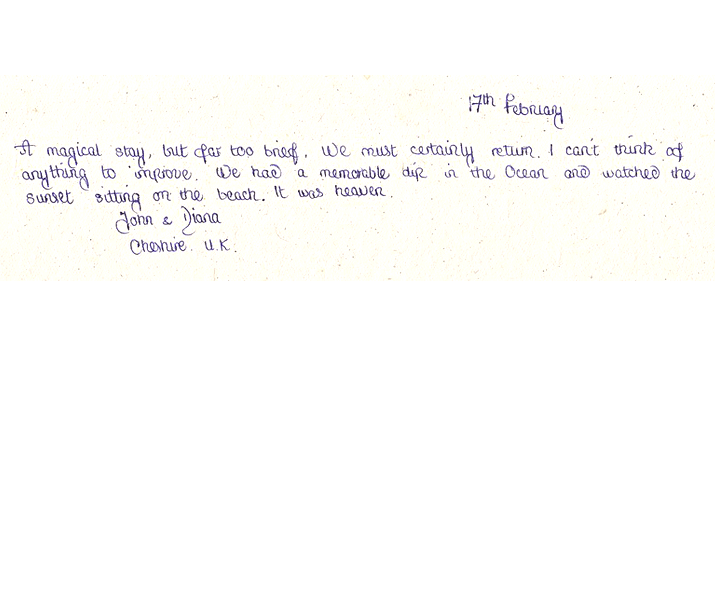 17th February
A magical stay, but far too brief. We must certainly return. I can't think of
anything to improve. We had a memorable dip in the Ocean and watched the
sunset sitting on the beach. It was heaven.
John & Diana
Cheshire. U.K.